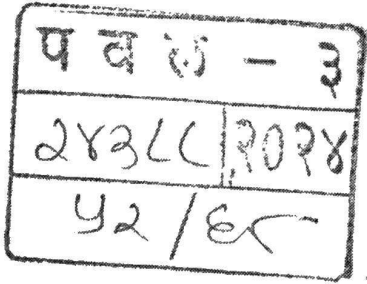 प व ल - ३
२४३८८ २०२४
५२/६८